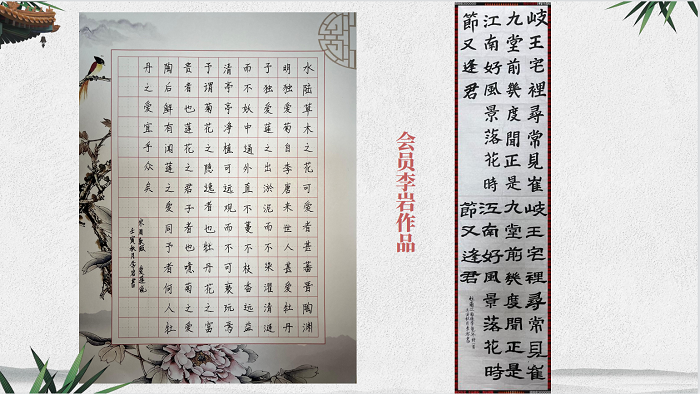 水陆草木之花可爱者甚蕃晋陶渊
明独爱菊自李唐来世人甚爱牡丹
予独爱莲之出淤泥而不染濯清涟
而不妖中通外直不蔓不枝香远益
清亭亭净植可远观而不可亵玩焉
予谓菊花之隐逸者也牡丹花之富
贵者也莲花之君子者也噫菊之爱
陶后鲜有闻莲之爱同予者何人牡
丹之爱宜乎众矣
宋周敦颐 爱莲说
壬寅秋月李岩书
会员李岩作品
岐王宅裡尋常見崔
九堂前幾度聞正是
江南好風景落花時
節又逢君
岐王宅裡尋常見崔
九堂前幾度聞正是
江南好風景落花時
節又逢君